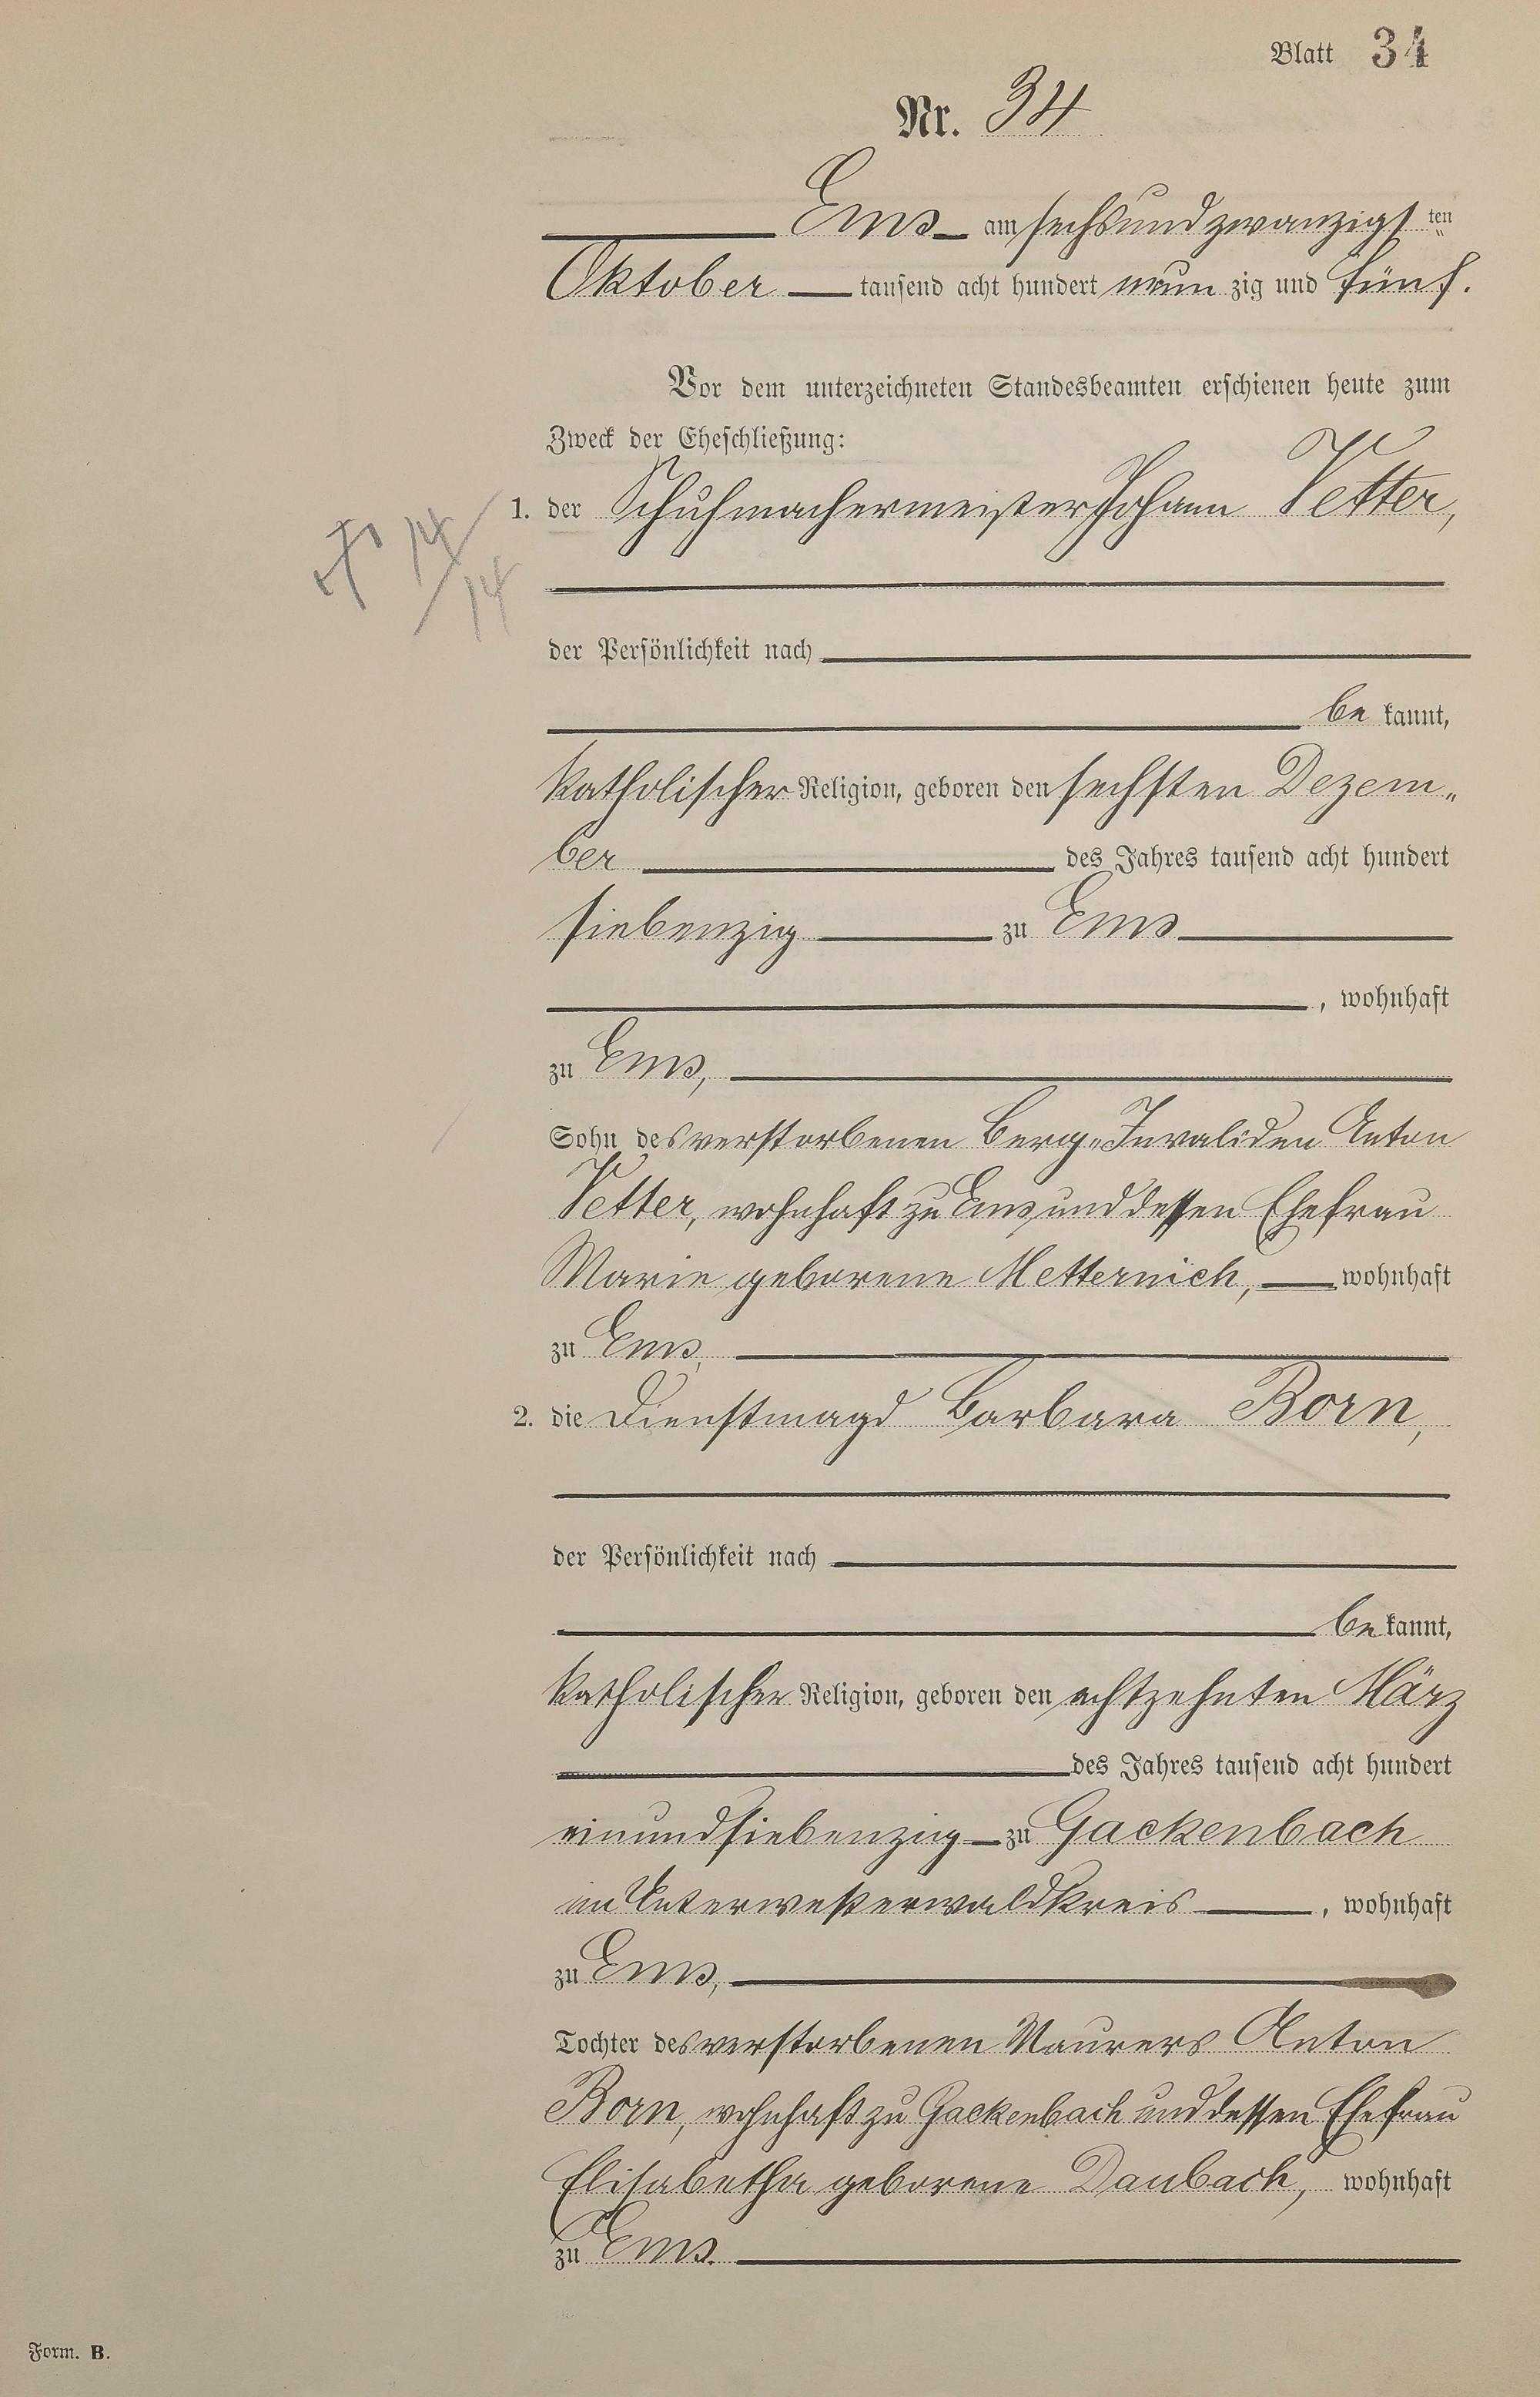 Blatt 34
Nr. 34
Ems am sechsundzwanzigsten
Oktober tausend acht hundert neunzig und fünf.
Vor dem unterzeichneten Standesbeamten erschienen heute zum
Zweck der Eheschließung:
1. der Schuhmachermeister Johann Vetter,
14/14
der Persönlichkeit nach
bekannt,
katholischer Religion, geboren den sechsten Dezem„
ber des Jahres tausend acht hundert
siebenzig zu Ems
, wohnhaft
zu Ems,
Sohn des verstorbenen Berg„Invaliden Anton
Vetter, wohnhaft zu Ems, und dessen Ehefrau
Marie geborene Metternich, wohnhaft
zu Ems,
2. die Dienstmagd Barbara Born,
der Persönlichkeit nach
bekannt,
katholischer Religion, geboren den achtzehnten März
des Jahres tausend acht hundert
einundsiebenzig zu Gackenbach
im Unterwesterwaldkreis, wohnhaft
zu Ems,
Tochter des verstorbenen Maurers Anton
Born, wohnhaft zu Gackenbach und dessen Ehefrau
Elisabetha geborene Daubach, wohnhaft
zu Ems.
Form. B.